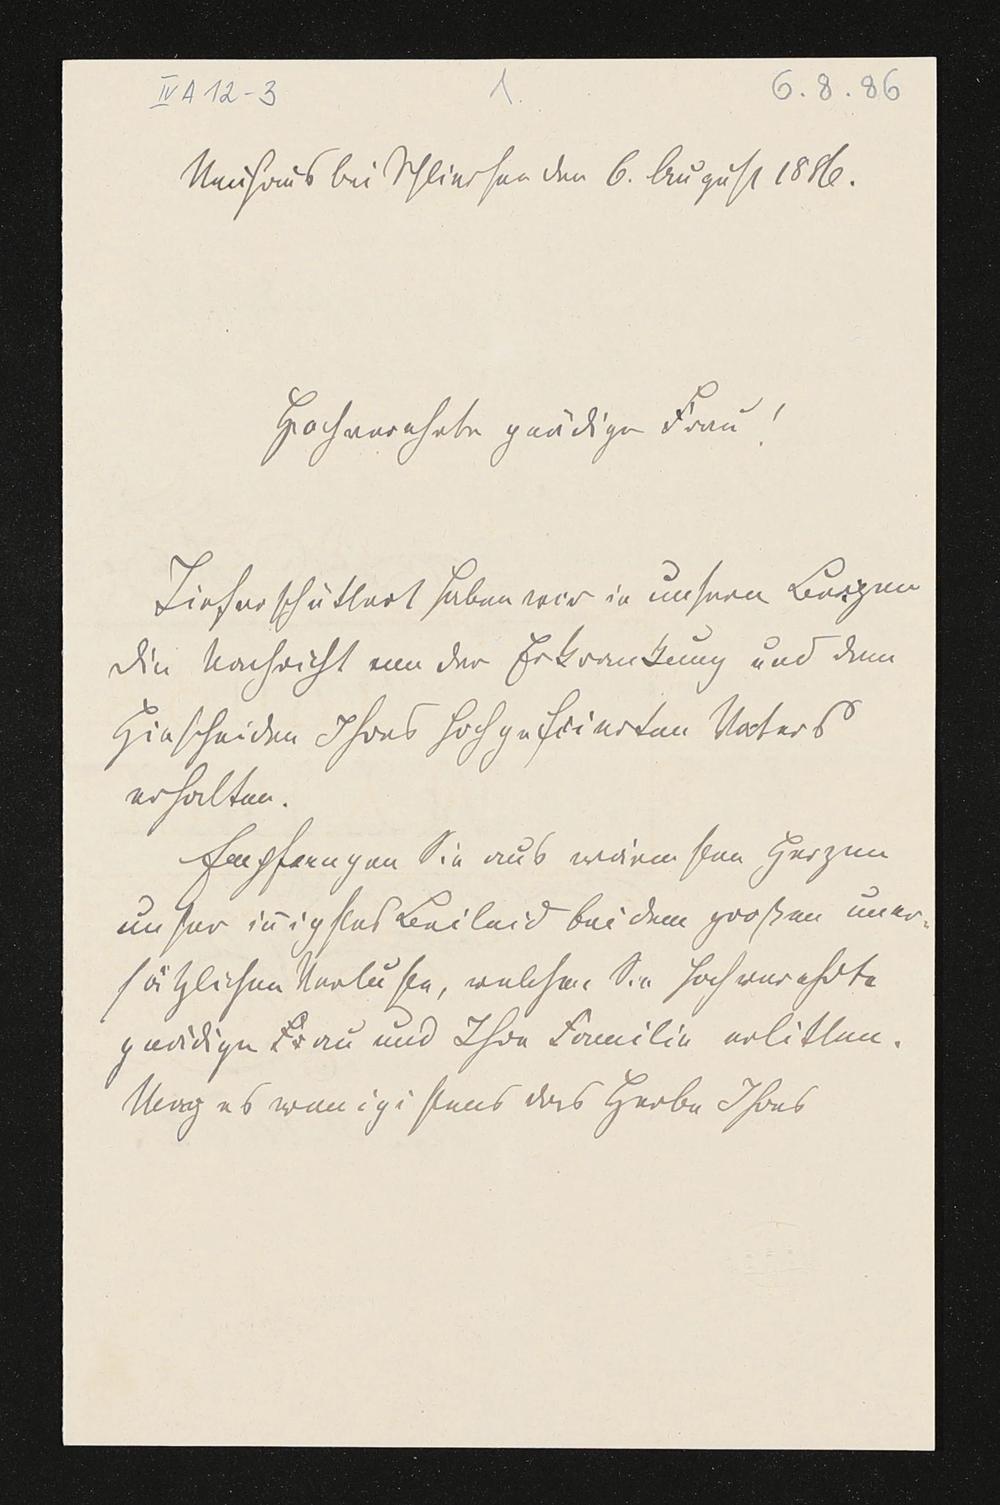 IV A 12-3 1. 6.8.86
Neuhaus bei Schliersee den 6. August 1886.
Hochverehrte gnädige Frau!
Tieferschüttert haben wir in unsern Bergen
die Nachricht von der Erkrankung und dem
Hinscheiden Ihres hochgefeierten Vaters
erhalten.
Empfangen Sie aus warmen Herzen
unser innigstes Beileid bei dem großen uner-
sätzlichen Verluste, welchen Sie hochverehrte
gnädige Frau und Ihre Familie erlitten.
Mag es wenigistens das Herbe Ihres